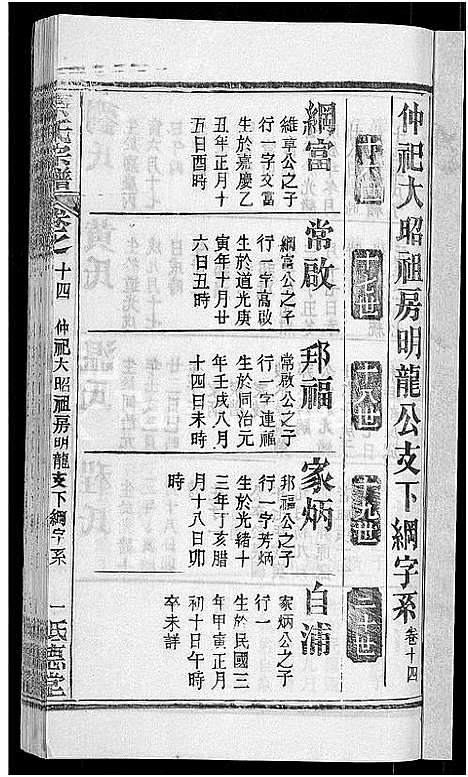 仲祀大昭祖房明龍公支下綱字系 卷十四
十六世
十七世
十八世
十九世
二十世
綱富
維草公之子
行一字交富
生於嘉慶乙
丑年正月十
五日酉時
常啟
綱富公之子
行一字高啟
生於道光庚
寅年十月廿
六日丑時
邦福
常啟公之子
行一字連福
生於同治元
年壬戌八月
十四日未時
家炳
邦福公之子
行一字芳炳
生於光緒十
三年丁亥腊
月十八日卯
時
自浦
家炳公之子
行一
生於民國三
年甲寅正月
初十日午時
卒未詳
氏宗譜 卷之十四 仲祀大昭祖房明龍支下綱字系 一 堂